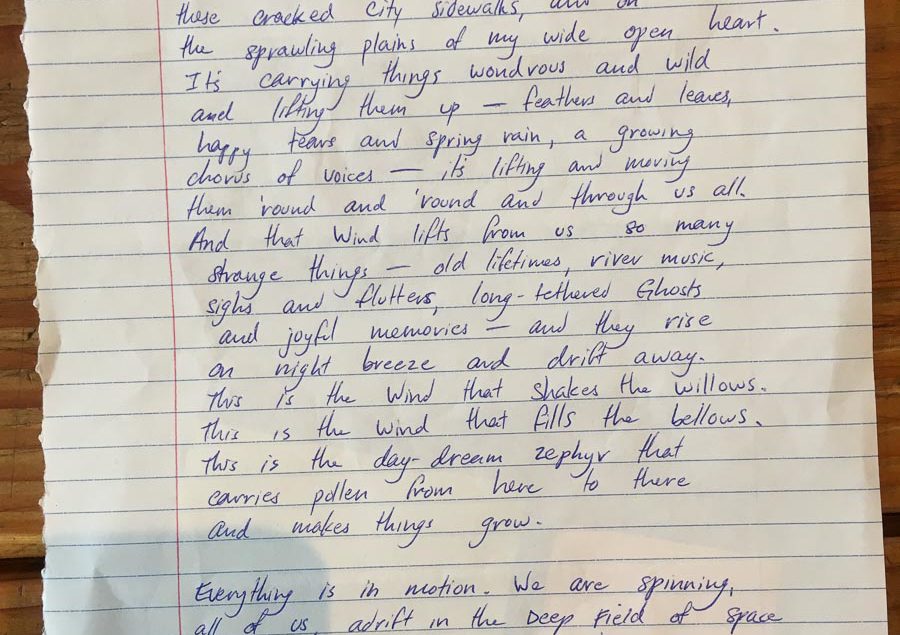 these cracked City sidewalks, and on
the sprawling plains of my wide open heart.
It's carrying things wondrous and wild
and lifting them up — feathers and leaves,
happy tears and spring rain, a growing
chorus of voices — it's lifting and moving
them 'round and 'round and through us all.
And that Wind lifts from us so many
strange things — old lifetimes, river music,
sighs and flutters, long-tethered Ghosts
and joyful memories — and they rise
on night breeze and drift away.
This is the Wind that shakes the willows.
This is the Wind that fills the bellows.
This is the day-dream zephyr that
carries pollen from here to there
and makes things grow.
Everything is in motion. We are spinning,
all of us, adrift in the Deep Field of Space